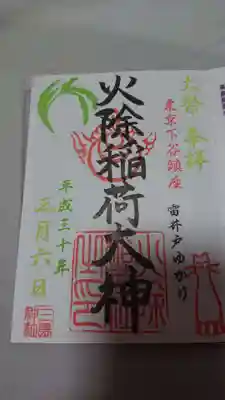 大祭 奉拝
東京下谷鎮座
雷井戸ゆかり
火除稲荷大神
平成三十年
三月六日
三島神社